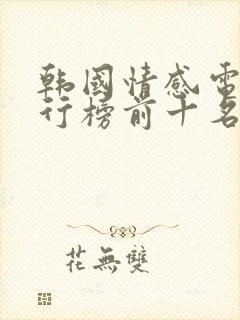 韩國情感電
行榜前十名
花無雙